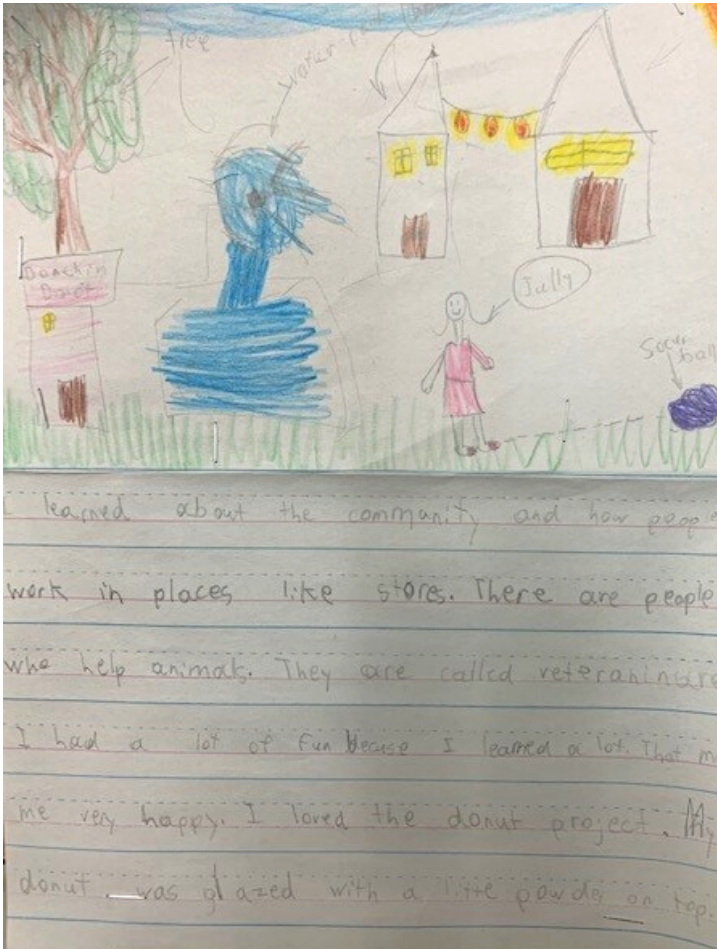 tree
water
Donckin
Donct
Jully
Socur
ball
I learned about the community and how people
work in places like stores. There are people
who help animals. They are called
I had a lot of fun becuse I learned a lot. That
me very happy. I loved the donut project. My
donut was glazed with a powder on top.